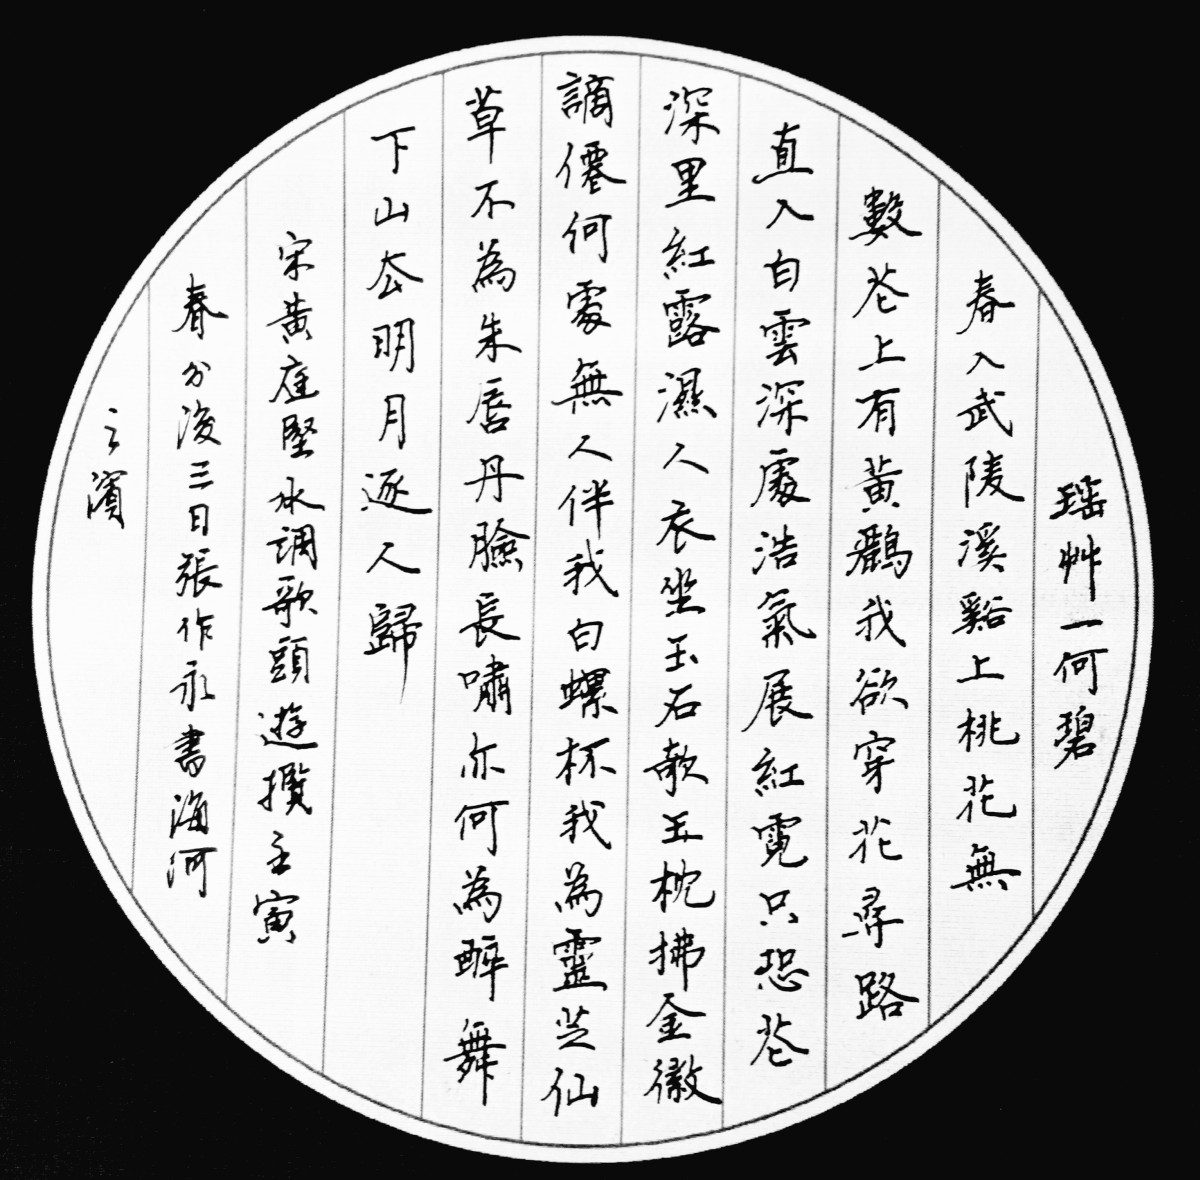 瑶艸一何碧
春入武陵溪谿上桃花無
數花上有黃鸝我欲穿花尋路
直入白雲深處浩氣展紅霓只恐花
深里紅露濕人衣坐玉石欹玉枕拂金徽
謫僊何處無人伴我白螺杯我為靈芝仙
草不為朱唇丹臉長嘯亦何為醉舞
下山去明月逐人歸
宋黃庭堅水調歌頭遊攬壬寅
春分後三日張作永書海河
之濱